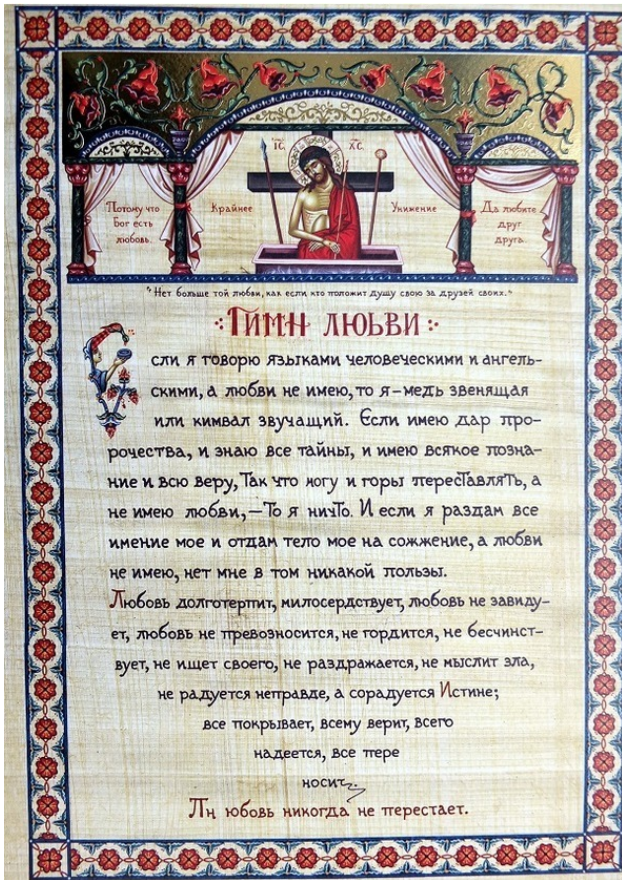 IC XC
Потому что Крайнее Унижение Да любите
Бог есть друг
любовь. друга.
"Нет больше той любви, как если кто положит душу свою за друзей своих."
ГИМН ЛЮЬВИ
Если я говорю языками человеческими и ангель-
скими, а любви не имею, то я – медь звенящая
или кимвал звучащий. Если имею дар про-
рочества, и знаю все тайны, и имею всякое позна-
ние и всю веру, Так что могу и горы переставлять, а
не имею любви, – То я ничто. И если я раздам все
имение мое и отдам тело мое на сожжение, а любви
не имею, нет мне в том никакой пользы.
Любовь долготерпит, милосердствует, любовь не завиду-
ет, любовь не превозносится, не гордится, не бесчинст-
вует, не ищет своего, не раздражается, не мыслит зла,
не радуется неправде, а сорадуется Истине;
все покрывает, всему верит, всего
надеется, все пере
носит.
Лн юбовь никогда не перестает.